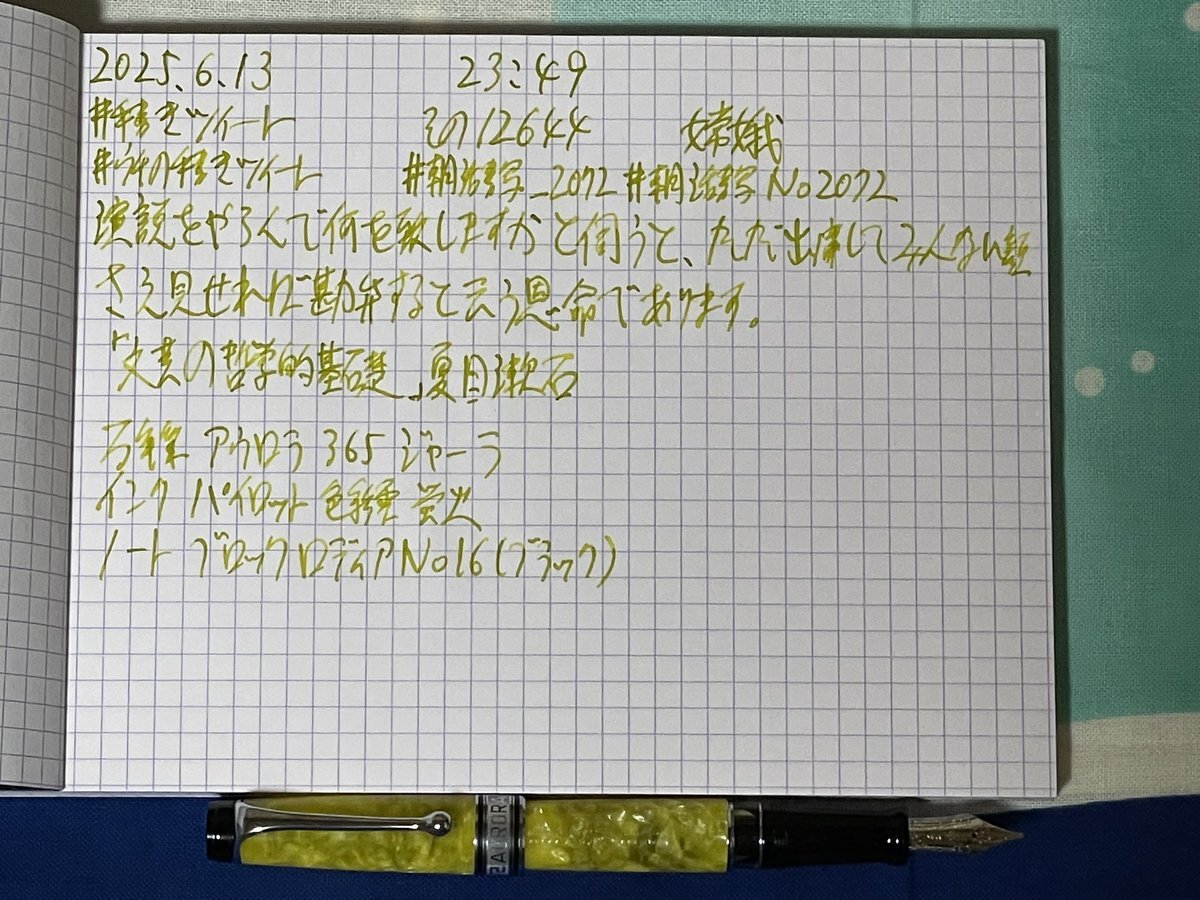 2025.6.13 23:49
#手書きツイート その12644 嫦娥
#今日の手書きツイート #朝活書写_2072 #朝活書写No2072
演説をやるんで何を致しますかと伺うと、ただ出席してみんなに顔
さえ見せれば勘弁すると云う恩命であります。
「文芸の哲学的基礎」夏目漱石
万年筆 アウロラ 365 ジャーラ
インク パイロット 色彩雫 蛍火
ノート ブロックロディアNo16(ブラック)
AURORA